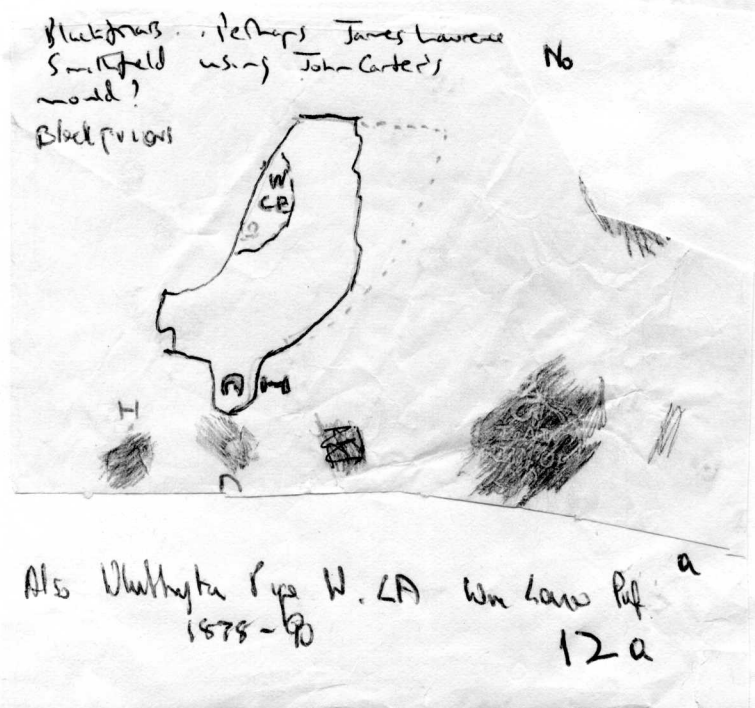 Blackfriars .. Perhaps James Lawrence
Smithfield using John Carter's
mould?
No
Blackfriars
W
CA
H
D
a
Also Whittington Pipe W. CA Wm
1878-90
12a